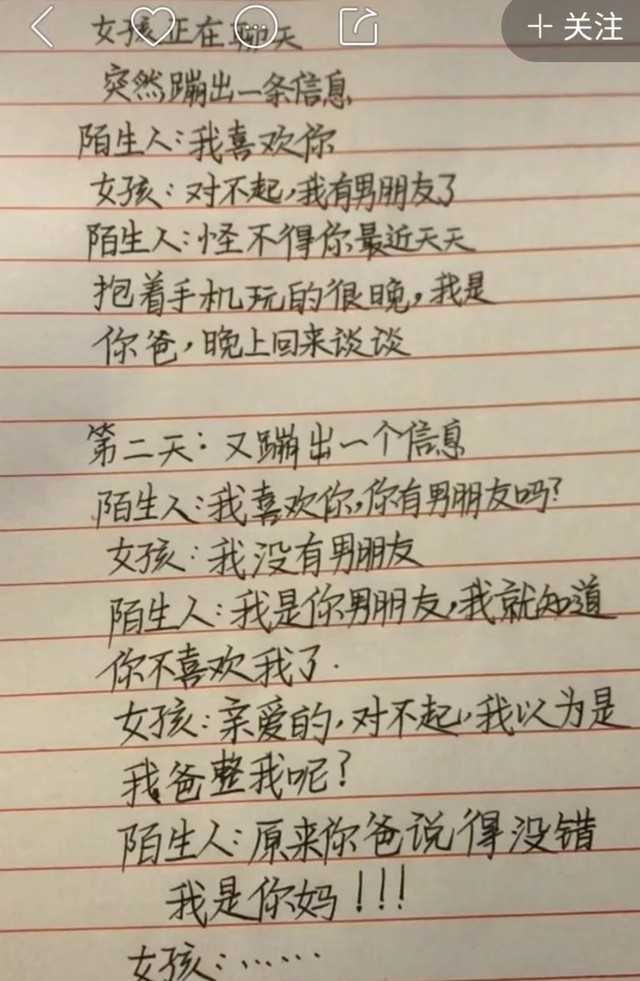 女孩正在聊天
+ 关注
突然蹦出一条信息
陌生人:我喜欢你
女孩:对不起,我有男朋友了
陌生人:怪不得你最近天天
抱着手机玩的很晚,我是
你爸,晚上回来谈谈
第二天:又蹦出一个信息
陌生人:我喜欢你,你有男朋友吗?
女孩:我没有男朋友
陌生人:我是你男朋友,我就知道
你不喜欢我了.
女孩:亲爱的,对不起,我以为是
我爸整我呢?
陌生人:原来你爸说得没错
我是你妈!!!
女孩:……